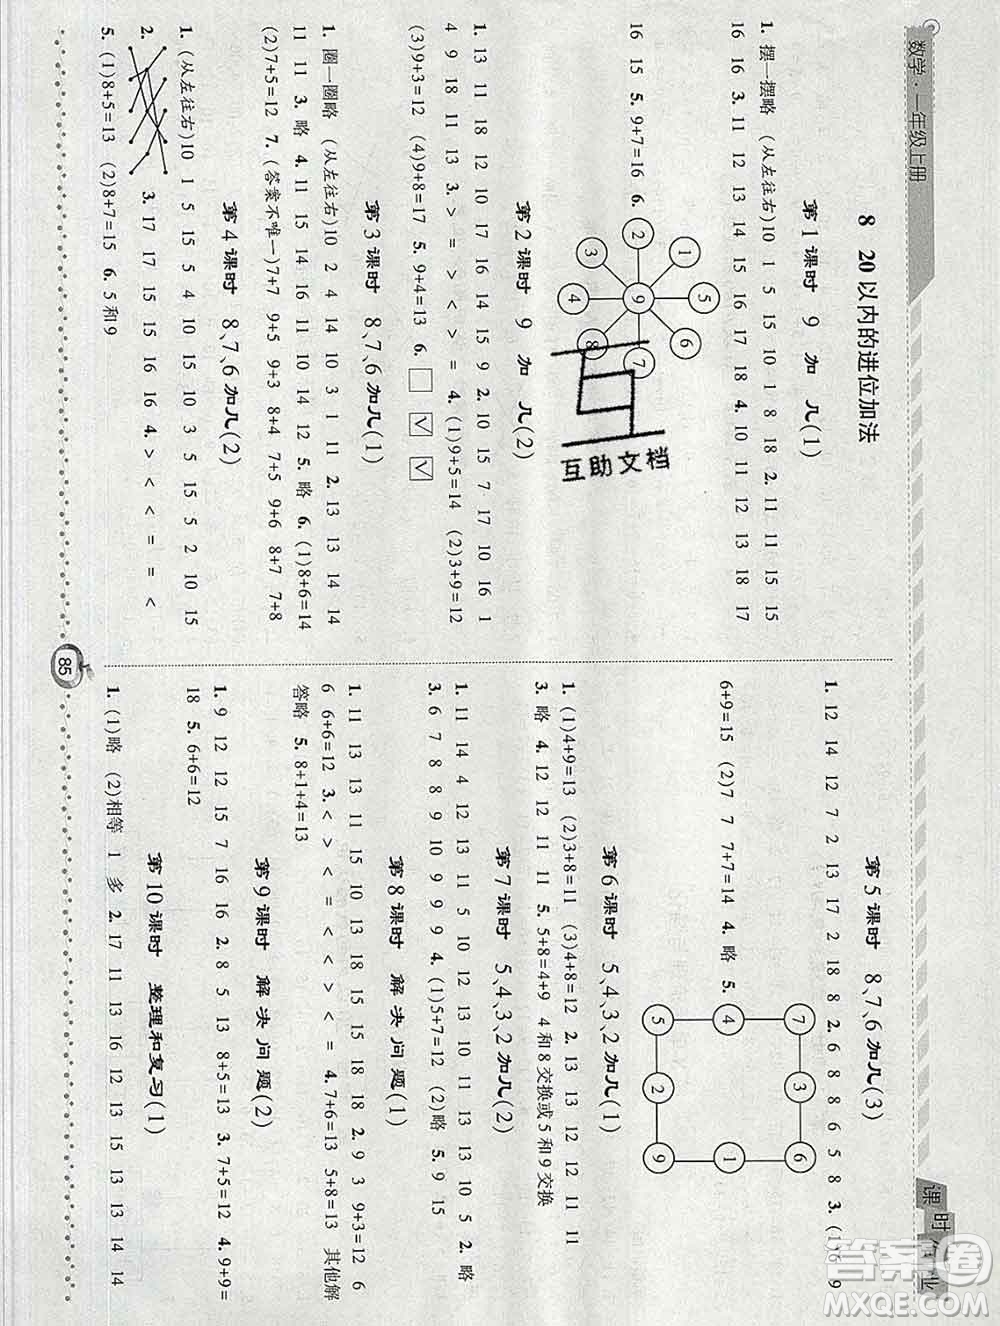 数学·一年级上册
课时作业
8 20以内的进位加法
第1课时 9加几(1)
1. 摆一摆略 (从左往右)10 1 5 15 10 1 8 18 2. 11 15 15
16 16 3. 17 19 13 14 15 17 18 4. 10 11 12 13 18 17
16 15 5. 9+7=16 6.
2 1 5 6 7 8 4 3 9
第2课时 9加几(2)
1. 13 11 18 12 10 17 16 14 15 9 2. 10 15 7 17 10 16 1
4 9 18 13 11 17 3. > = > < > = 4. (1)9+5=14 (2)3+9=12
(3)9+3=12 (4)9+8=17 5. 9+4=13 6. □ ☑ ☑
第3课时 8、7、6加几(1)
1. 圈一圈略 (从左往右)10 2 4 14 10 3 1 11 2. 13 13 14 14
11 11 3. 略 4. 11 15 14 16 11 10 14 12 5. 略 6. (1)8+6=14
(2)7+5=12 7. (答案不唯一)7+7 9+5 9+3 8+4 7+5 9+6 8+7 7+8
第4课时 8、7、6加几(2)
1. (从左往右)10 1 5 15 15 10 3 5 15 5 2 10 15
2. 3. 17 17 15 15 16 16 4. > < < = = <
5. (1)8+5=13 (2)8+7=15 6. 5和9
第5课时 8、7、6加几(3)
1. 12 14 12 7 2 13 17 2 18 8 2. 6 9 8 5 8 3. (1)6 9
6+9=15 (2)7 7 7+7=14 4. 略 5.
7 3 6 4 1 5 2 9
第6课时 5、4、3、2加几(1)
1. (1)4+9=13 (2)3+8=11 (3)4+8=12 2. 13 13 11 12 11 11
3. 略 4. 12 12 11 11 5. 5+8=4+9 4和8交换或5和9交换
第7课时 5、4、3、2加几(2)
1. 11 14 4 12 13 11 5 10 12 13 10 11 13 13 10 5 2. 略
3. 6 7 8 8 9 10 9 9 9 9 4. (1)5+7=12 (2)略 5. 9 15
第8课时 解决问题(1)
1. 11 13 13 11 15 10 13 18 15 15 18 18 2. 9 3 9+3=12 6
6 6+6=12 3. < > < = < < > < = 4. 7+6=13 5+8=13 其他解
答略 5. 8+1+4=13
第9课时 解决问题(2)
1. 9 12 12 15 7 16 16 2. 8 5 13 8+5=13 3. 7+5=12 4. 9+9=
18 5. 6+6=12
第10课时 整理和复习(1)
1. (1)略 (2)相等 1 多 2. 17 11 13 16 12 13 15 13 13 14 14
85
互助文档
答案圈
MXQE.COM